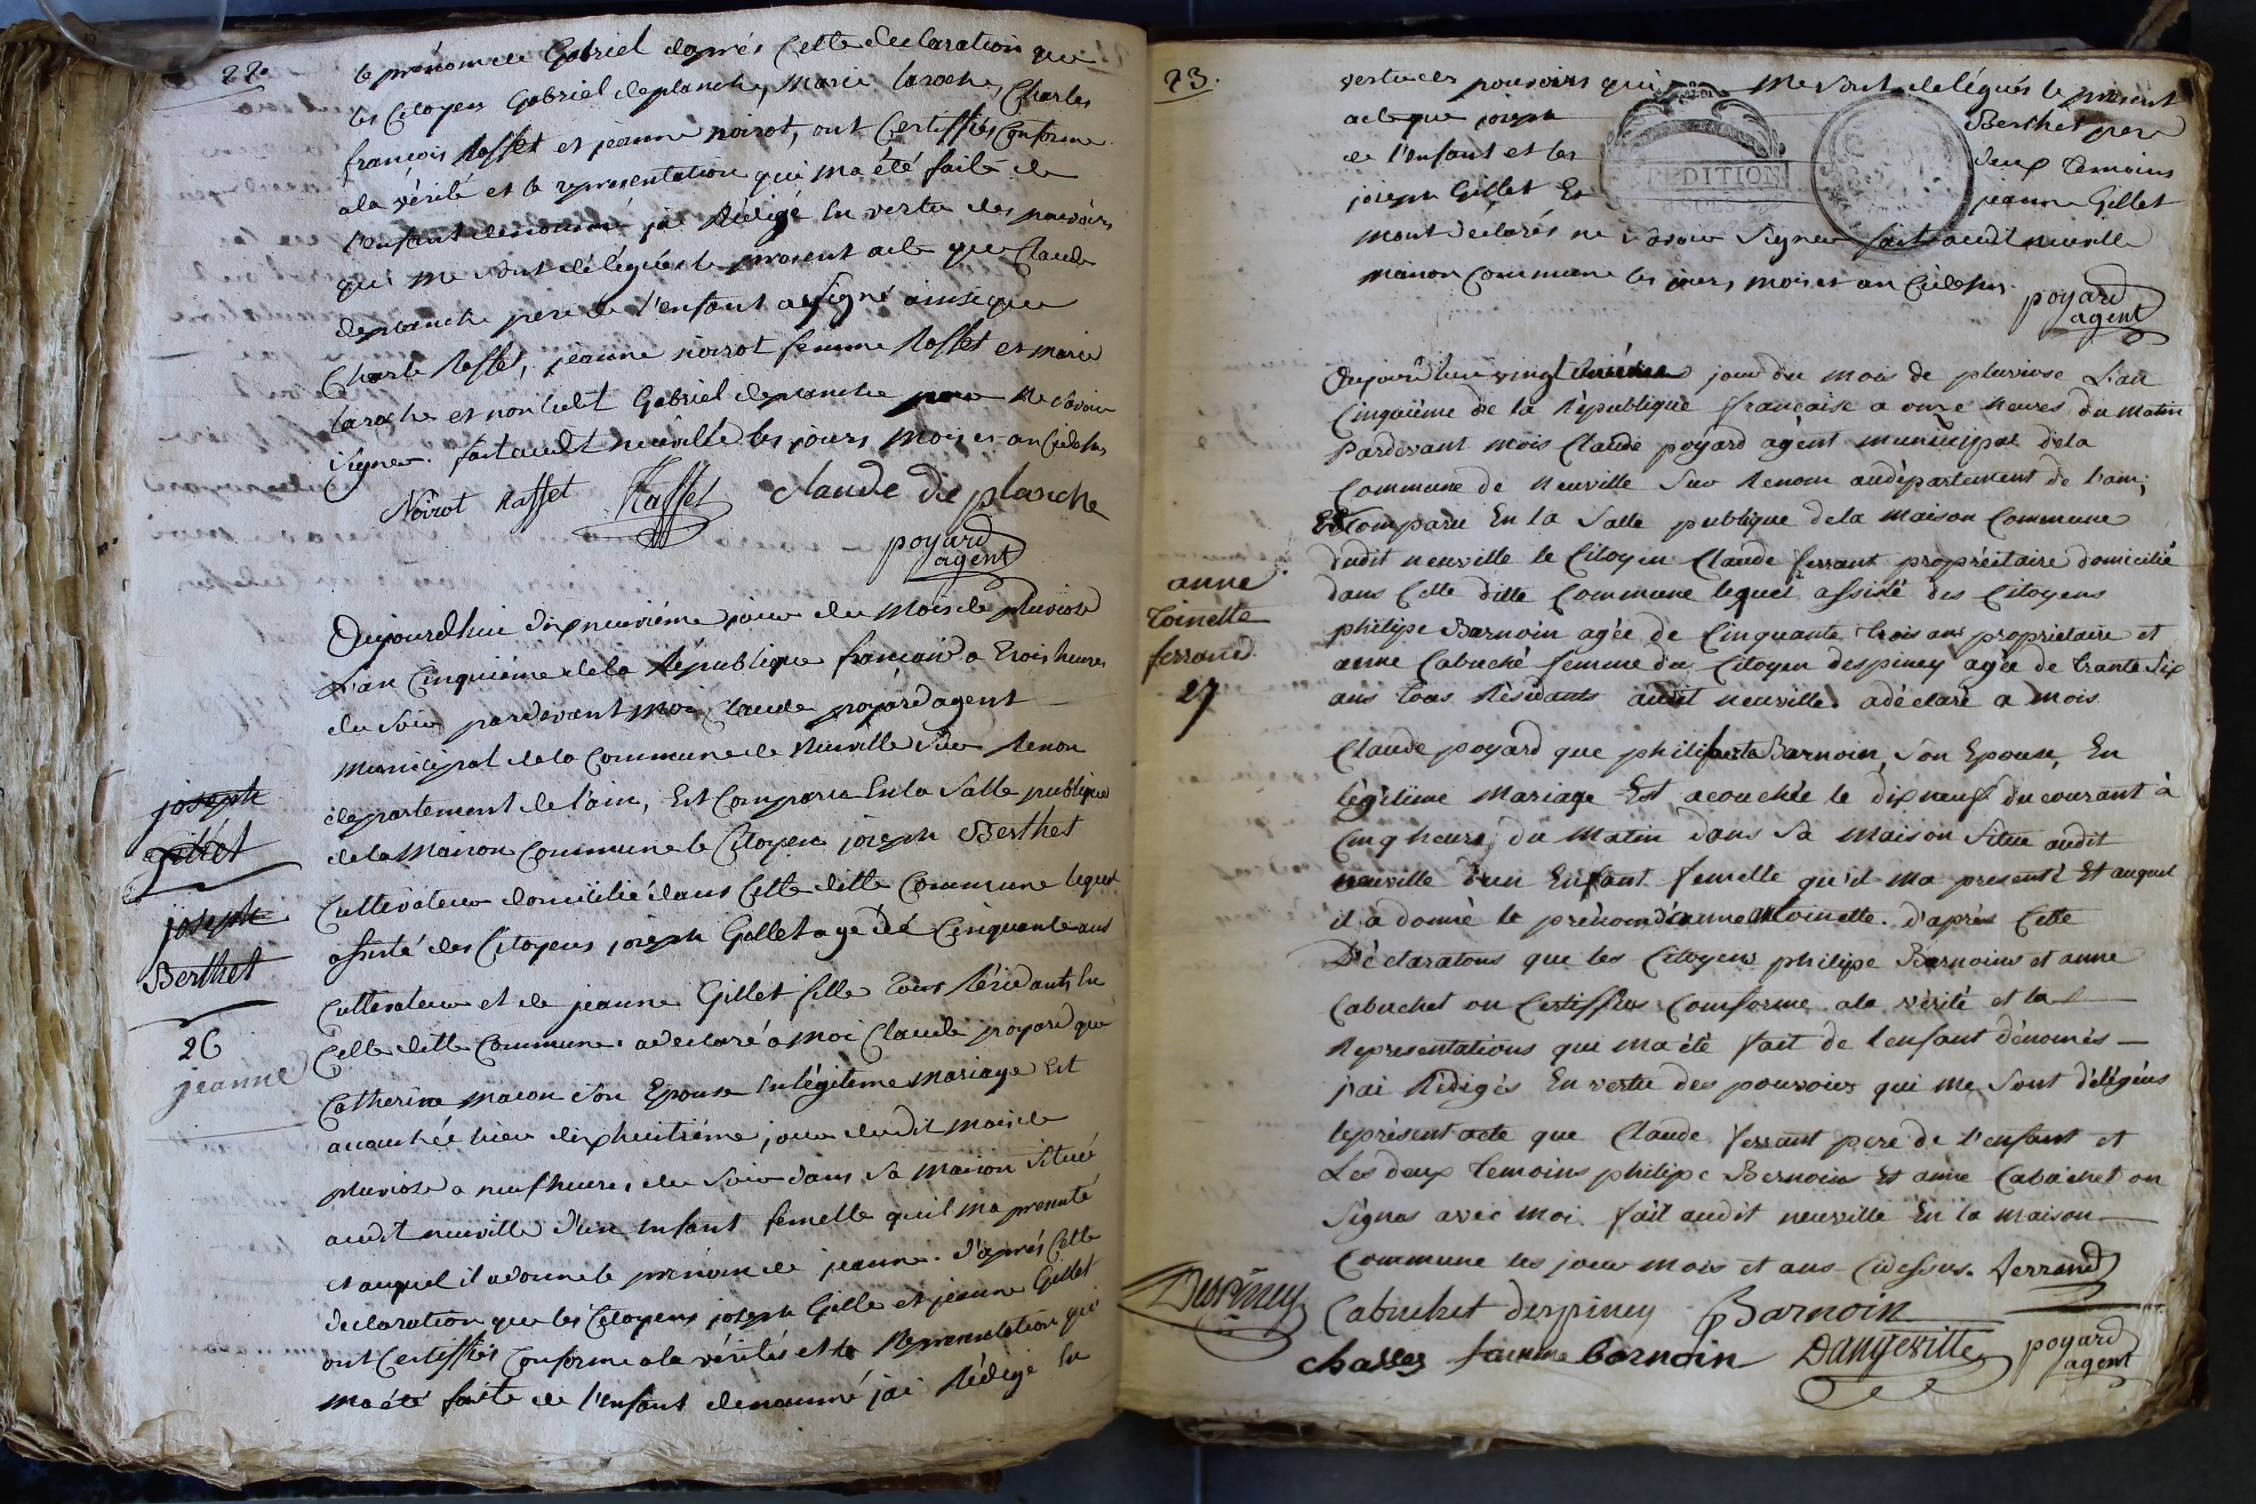 22.
le prénom de Gabriel daprés Cette declaration que
les Citoyens Gabriel deplanche, Marie laroche, Charles
françois Raffet et jeanne noirot, ont Certiffiés Conforme
ala vérité et la representation qui ma été faite de
l'enfant denommé jai Rédigé En vertu des pouvoirs
qui me sont délégués le present acte que Claude
deplanche pere de l'enfant a signé ainsique
Charle Raffet, jeanne noirot femme Raffet et marie
laroche et non ledt Gabriel deplanche pour ne savoir
signer. fait audt neuville les jours, mois et an Cidessus
Noirot Raffet Raffet claude de planche
poyard
agent
Aujourdhui dixneuviéme jour du mois de pluviose
L'an Cinquiéme de la République francaise a trois heures
du soir pardevant moi Claude poyard agent
municipal de la Commune de Neuville sur Renon
département de l'ain, Est Comparu En la Salle publique
de la Maison Commune le Citoyen joseph Berthet
Cultivateur domicilié dans Cette ditte Commune lequel
assisté des Citoyens joseph Gillet agé de Cinquante ans
Cultivateur et de jeanne Gillet fille tous Résidants En
Cette ditte Commune. a déclaré a moi Claude poyard que
Catherine macon son Epouse En légitime mariage Est
acouchée hier dixhuitiéme jour dudit mois de
pluviose a neuf heures du soir dans sa maison située
audit neuville d'un enfant femelle qu'il ma presenté
et auquel il a donné le prénom de jeanne. d'aprés Cette
declaration que les Citoyens joseph Gille et jeanne Gillet
ont Certiffiés Conforme ala vérités et la Representation qui
ma été faite de l'enfant denommé jai Rédigé En
joseph
gillet
joseph
Berthet
26
jeanne
23.
vertu des pouvoirs qui me sont delégués le present
acte que joseph Berthet pere
de l'enfant et les deux temoins
joseph Gillet Et jeanne Gillet
EDITION
mont déclarés ne savoir signer fait audit neuville
maison Commune les jours, mois et an Cidessus.
poyard
agent
Aujourd'hui vingt jour du mois de pluviose L'an
Cinquiéme de la République francaise a onze heures du matin
Pardevant mois Claude poyard agent municipal dela
Commune de Neuville sur Renom audépartement de l'ain,
Est Comparu En la Salle publique dela maison Commune
dudit neuville le Citoyen Claude ferrant propriétaire domicilié
dans Cette ditte Commune lequel assisté des Citoyens
philipe Barnoin agée de Cinquante trois ans propriétaire et
anne Cabuché femme du Citoyen despiney agée de trante six
ans tous Résidants audit neuville. adéclaré a mois
Claude poyard que philiberta Barnoin, son Epouse, En
légitime mariage Est acouchée le dix neuf du courant à
Cinq heures du matin dans sa maison située audit
neuville d'un Enfant femelle qu'il ma presenté Et auquel
il a donné le prénom d'anne toinette. d'aprés Cette
Déclaratons que les Citoyens philipe Barnoins et anne
Cabuchet on Certiffies Comforme ala vérité et la
Representations qui ma été fait de l'enfant dénomés
j'ai Rédigés En vertu des pouvoirs qui me sont délégués
leprésent acte que Claude ferrant pere de l'enfant et
Les deux temoins philipe Bernoins Et anne Cabuchet on
signés avec moi. fait audit neuville En la maison
Commune les jour mois et ans Cidessus. ferrand
Despiney Cabuchet despiney Barnoin
challes barnoin Dangeville poyard
agent
anne
toinette
ferrand
27